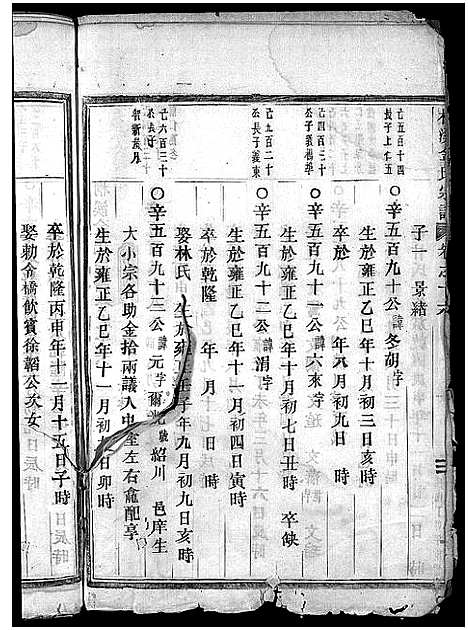 子一 景緒
己五百十四
長子上仕五
○辛五百九十公諱冬胡字
生於雍正乙巳年十月初三日亥時
卒於 年八月初九日 時
己四百三十
公子積楊季
○辛五百九十一公諱六來字
生於雍正乙巳年十月初七日丑時 卒缺
己五百二十
公長子義東
○辛五百九十二公諱涓字
生於雍正乙巳年十一月初四日寅時
卒於乾隆 年 月 日 時
娶林氏 生於雍正壬子年九月初九日亥時
己六百三十
○辛五百九十三公諱元字爾光號紹川 邑庠生
大小宗各助金拾兩議入中室左右龕配享
生於雍正乙巳年十一月初 日卯時
卒於乾隆丙申年十二月十五日子時
娶勅金橋飲賓徐韜公次女